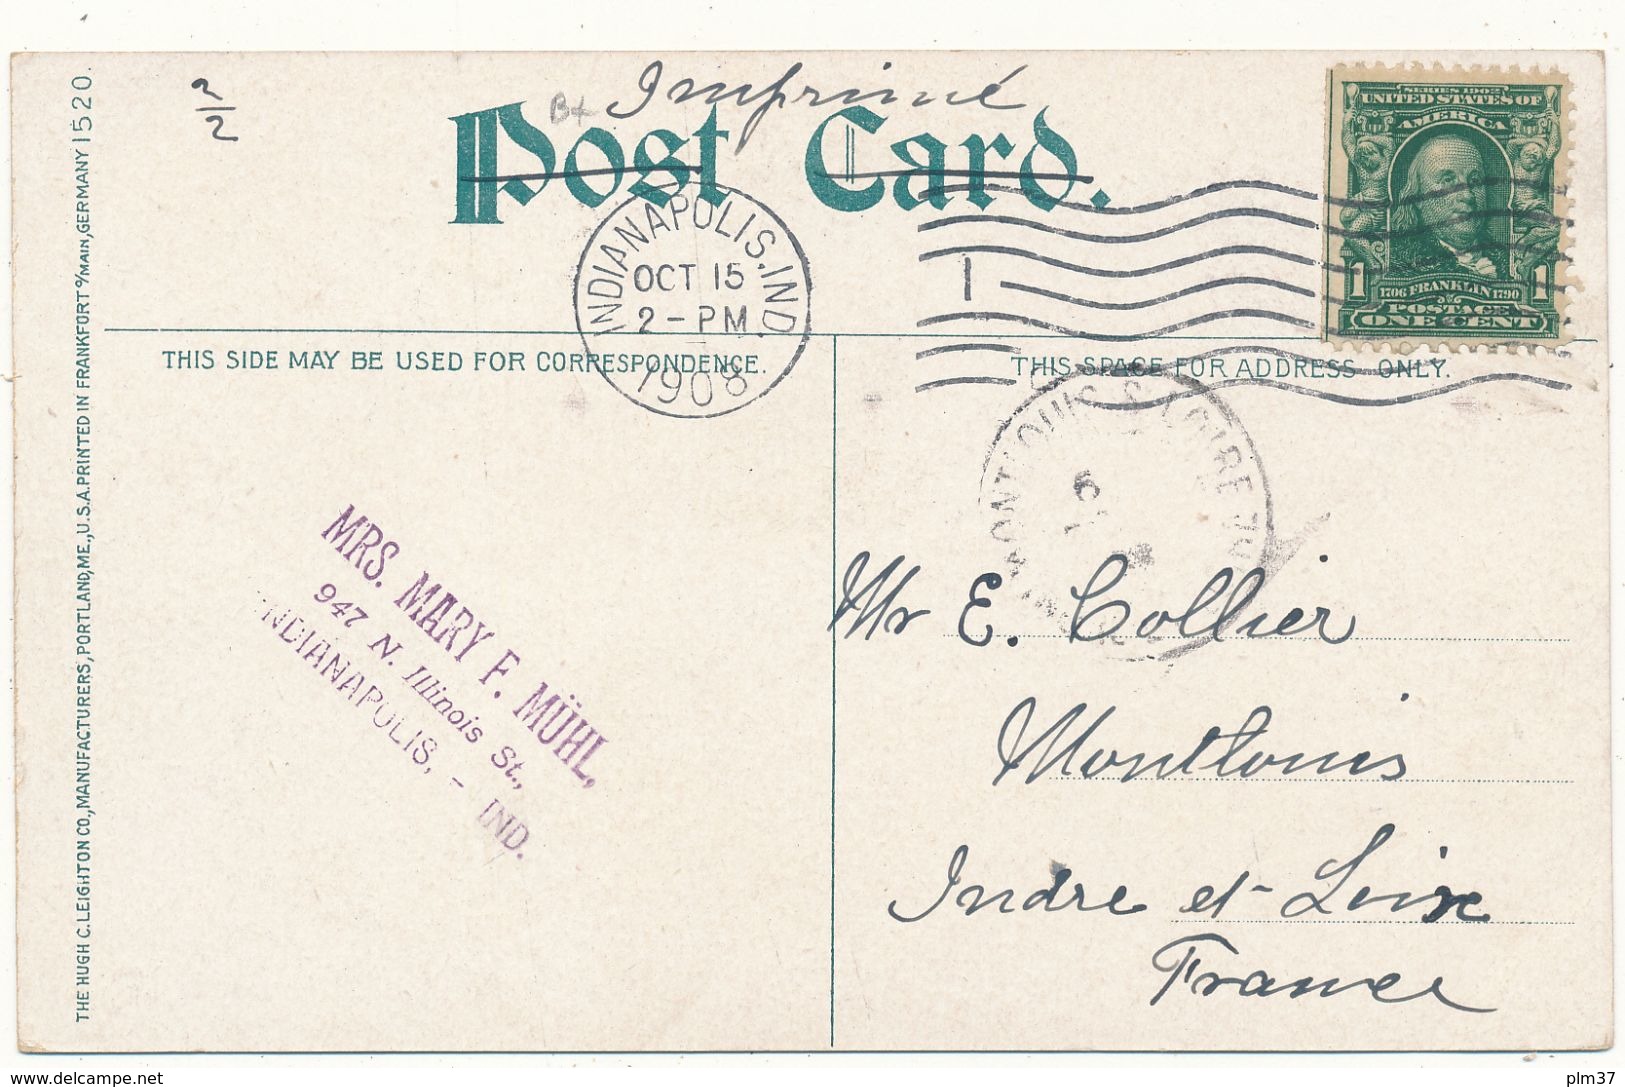 Imprimé
Post Card.
SERIES 1902
UNITED STATES OF
AMERICA
1 1
1706 FRANKLIN 1790
POSTAGE
ONE CENT
INDIANAPOLIS, IND.
OCT 15
2-PM
1908
1
THIS SIDE MAY BE USED FOR CORRESPONDENCE.
THIS SPACE FOR ADDRESS ONLY.
MONTLOUIS S LOIRE
MRS. MARY F. MÜHL,
947 N. Illinois St.,
INDIANAPOLIS, - IND.
Mr E. Collier
Montlouis
Indre et Loire
France
THE HUGH C. LEIGHTON CO., MANUFACTURERS, PORTLAND, ME., U.S.A. PRINTED IN FRANKFORT o/MAIN, GERMANY 1520.
www.delcampe.net
plm37